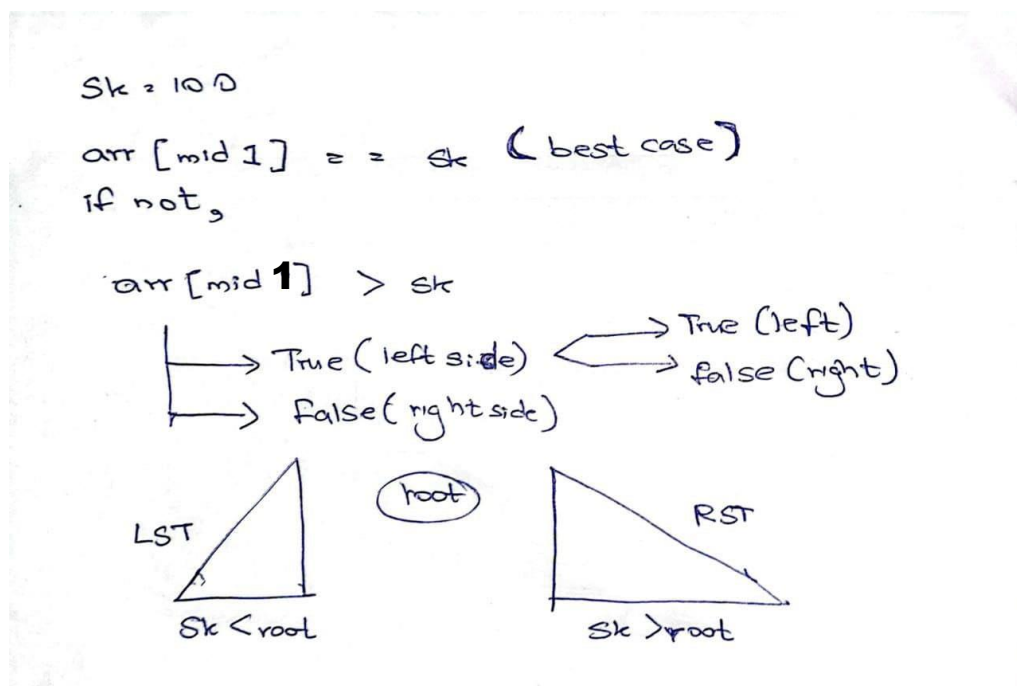 Sk = 100
arr [mid 1] == sk (best case)
if not,
arr [mid 1] > sk
True (left side)
True (left)
false (right)
false (right side)
root
LST
RST
Sk < root
Sk > root